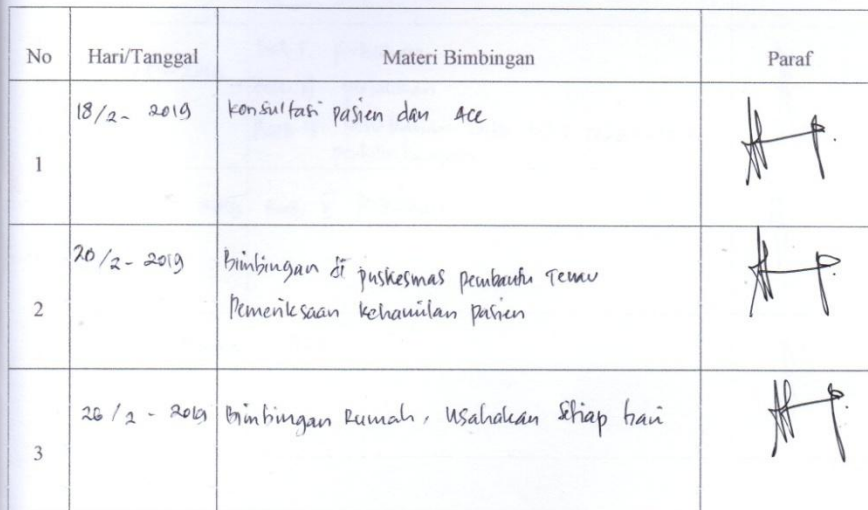 No Hari/Tanggal Materi Bimbingan Paraf
1 18/2- 2019 Konsultasi pasien dan Acc
2 20/2-2019 Bimbingan di puskesmas pembantu
Pemeriksaan kehamilan pasien
3 26/2 - 2019 Bimbingan Rumah, Usahakan Setiap hari